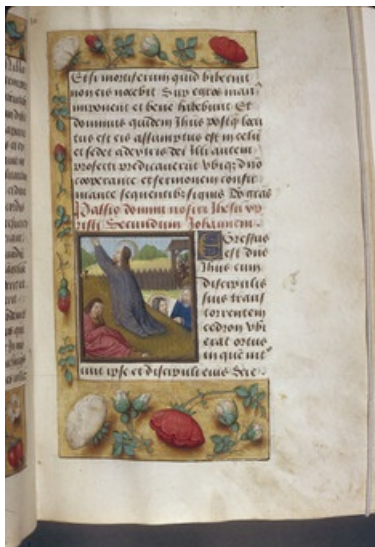 Et si mortiferum quid biberint
non eis nocebit Sup egros man⁹
imponent et bene habebunt Et
dominus quidem Jhus postq̄ locu
tus est eis assumptus est in celū
et sedet a dextris dei Illi autem
profecti predicauerūt vbiq; dn̄o
cooperante et sermonem confir
mante sequentib; signis Deo gr̄as
Passio domini nostri Jhesu xp̄
isti Secundum Johannem
Egressus
est dn̄s
Jhus cum
discipulis
suis trans
torrentem
cedron vbi
erat ortus
in quē int
iuit ipse et discipuli eius Scie